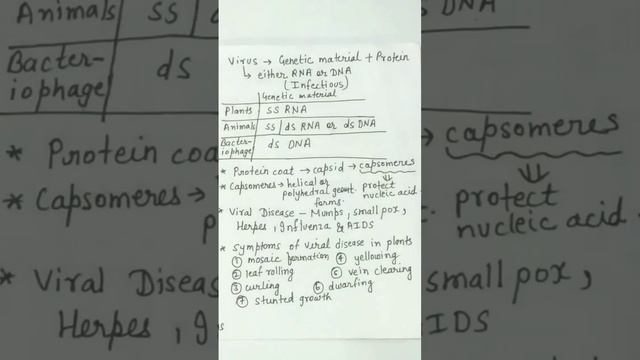 Virus → Genetic material + Protein
↳ either RNA or DNA
(Infectious)
Genetic material
Plants | ss RNA
Animals | ss / ds RNA or ds DNA
Bacter-
iophage | ds DNA
* Protein coat → capsid → capsomeres
* Capsomeres → helical or polyhedral geomt. forms.
⇓
protect
nucleic acid
* Viral Disease - Mumps, small pox,
Herpes, Influenza & AIDS
* Symptoms of viral disease in plants
① mosaic formation ④ yellowing
② leaf rolling ⑤ vein clearing
③ curling ⑥ dwarfing
⑦ stunted growth
Animals | ss /
DNA
Bacter-
iophage | ds
* Protein coat
→ capsomeres
* Capsomeres →
⇓
protect
nucleic acid
* Viral Disease
small pox,
Herpes, I
AIDS